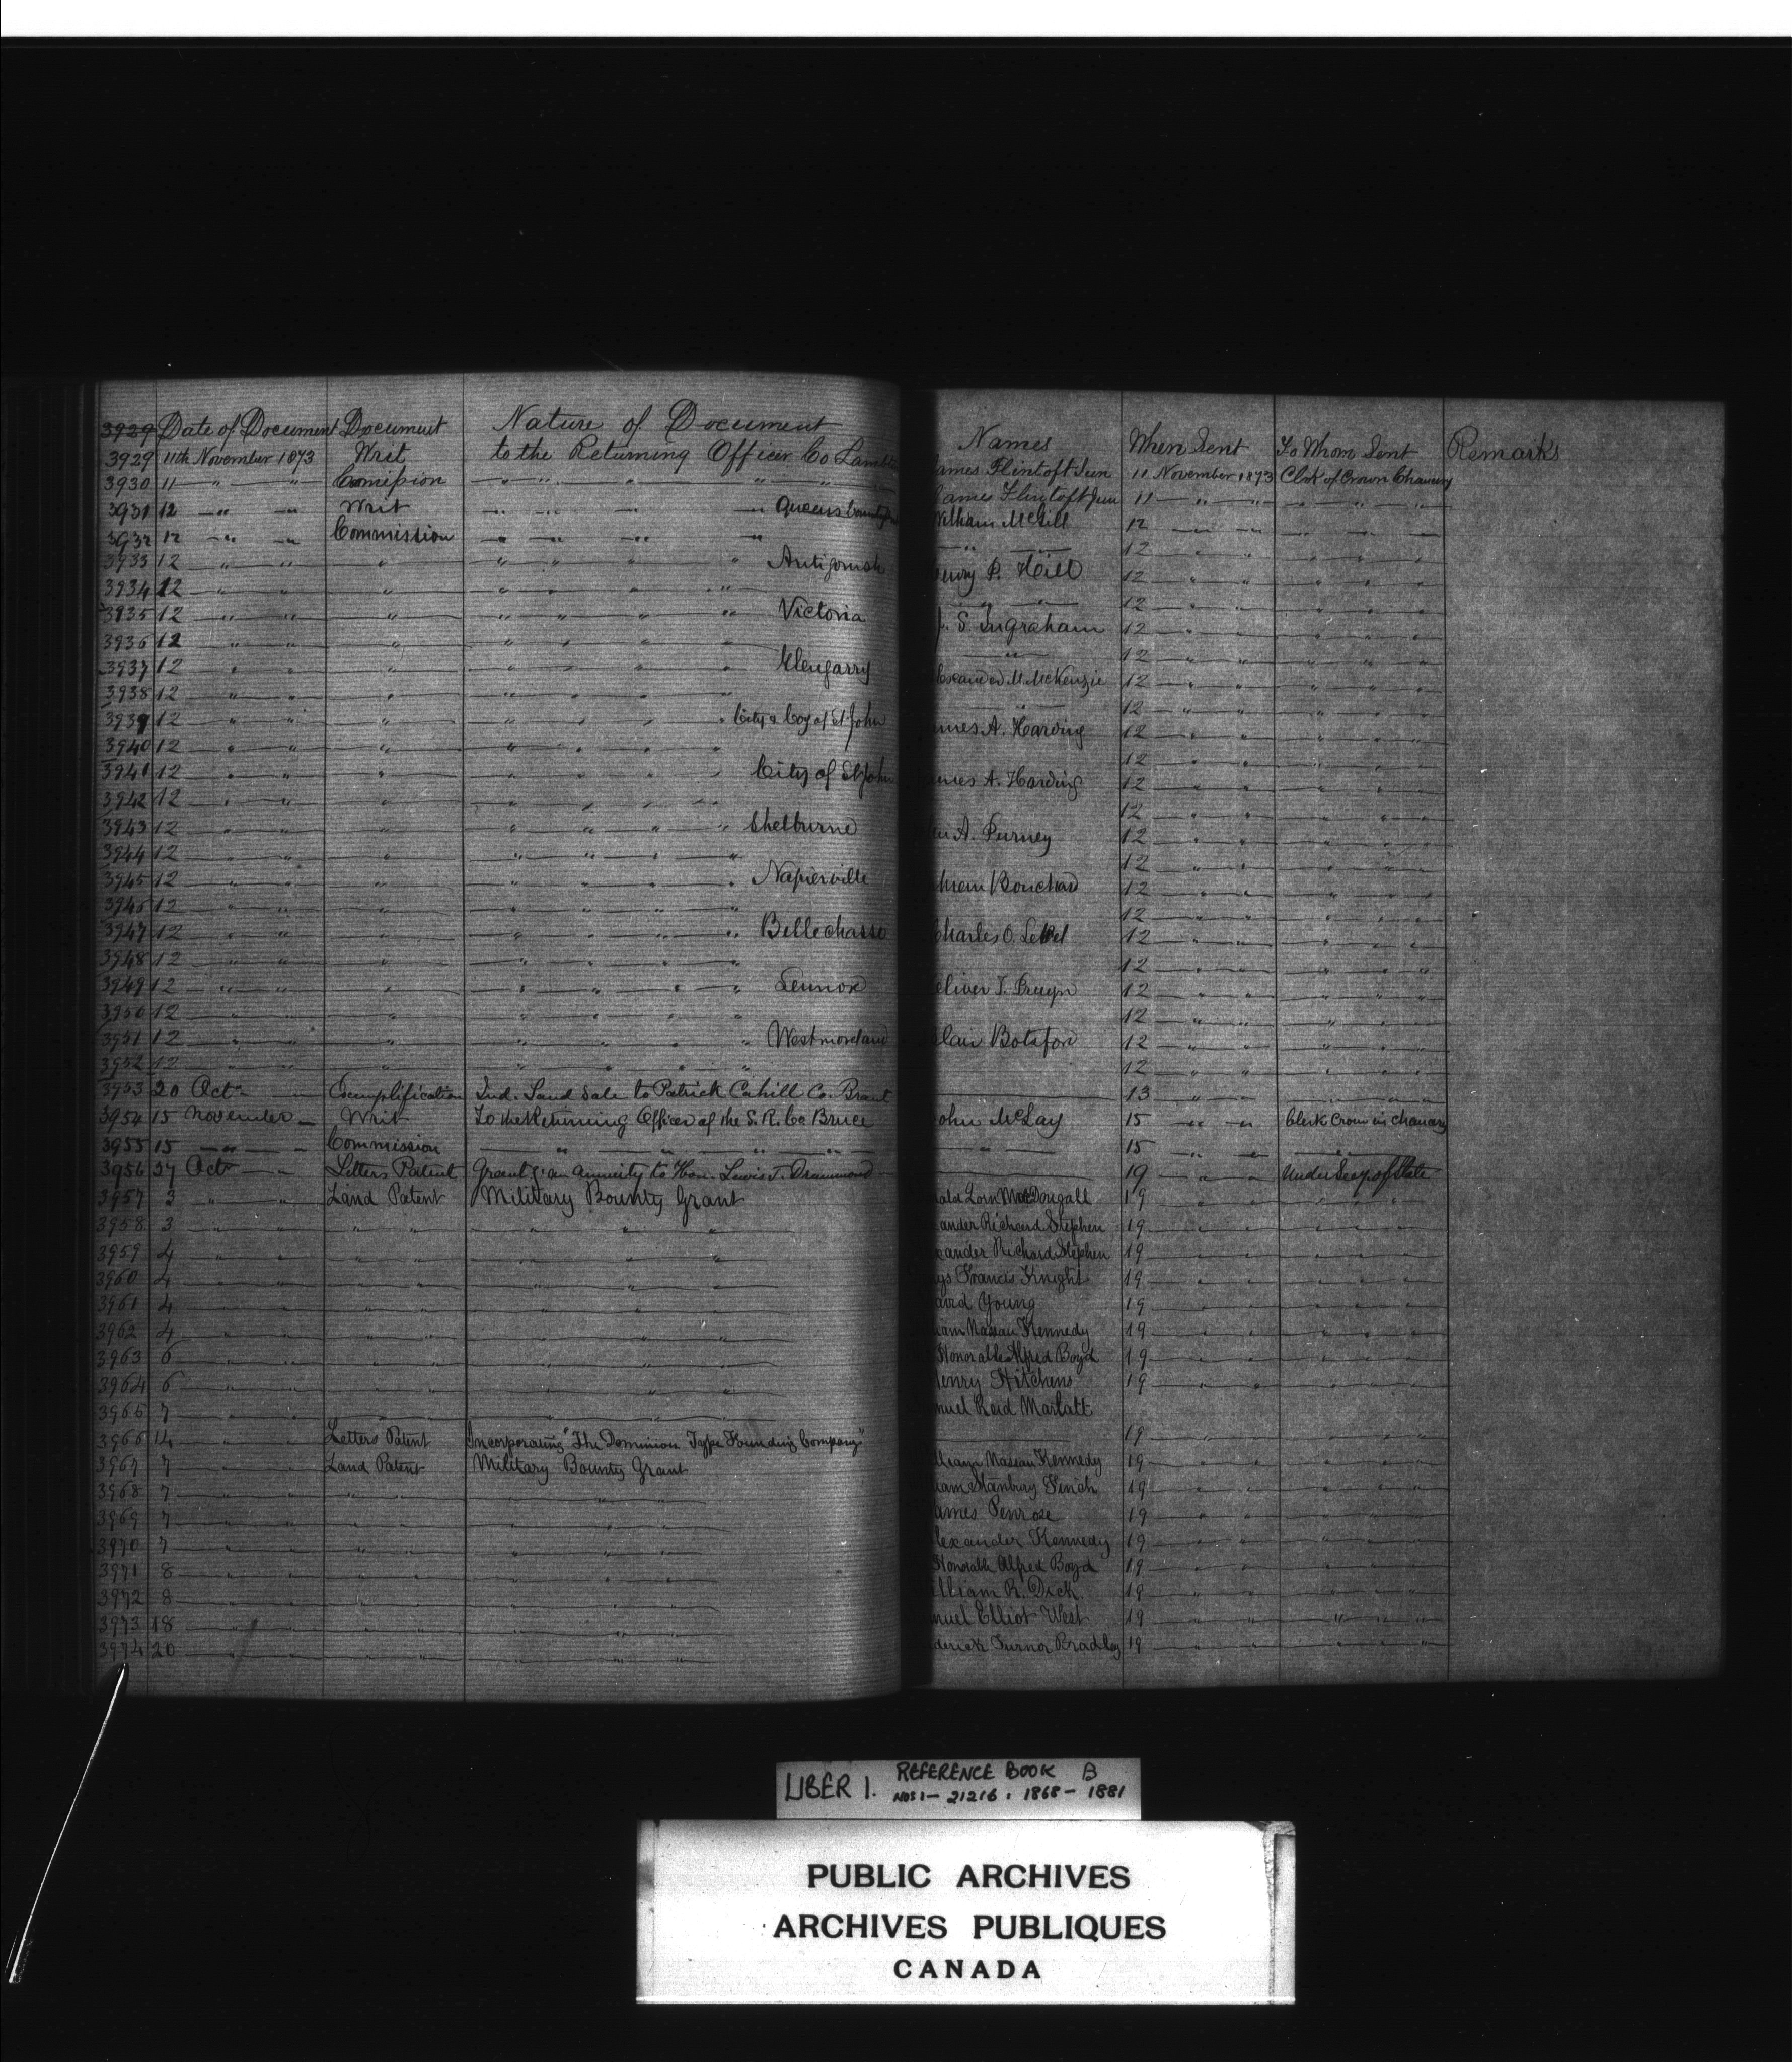 3929 Date of Document Document Nature of Document Names When Sent To Whom Sent Remarks
3929 11th November 1873 Writ to the Returning Officer Co Lambton James Flintoft Jun 11 November 1873 Clerk of Crown Chancery
3930 11 — " — " Comission — " — " — " — " — " James Flintoft Jun 11 — " — " — " — " — "
3931 12 — " — " Writ — " — " — " — " Queens County William McGill 12 — " — " — " — " — "
3932 12 — " — " Commission — " — " — " — " — " — 12 — " — " — " — " — "
3933 12 — " — " — " — " — " — " — " Antigonish Henry P. Hill 12 — " — " — " — " — "
3934 12 — " — " — " — " — " — " — " — " — 12 — " — " — " — " — "
3935 12 — " — " — " — " — " — " — " Victoria J. S. Ingraham 12 — " — " — " — " — "
3936 12 — " — " — " — " — " — " — " — " — 12 — " — " — " — " — "
3937 12 — " — " — " — " — " — " — " Glengarry Alexander M. McKenzie 12 — " — " — " — " — "
3938 12 — " — " — " — " — " — " — " — " — 12 — " — " — " — " — "
3939 12 — " — " — " — " — " — " — " City & Coy of St John James A. Harding 12 — " — " — " — " — "
3940 12 — " — " — " — " — " — " — " 12 — " — " — " — " — "
3941 12 — " — " — " — " — " — " — " City of St John James A. Harding 12 — " — " — " — " — "
3942 12 — " — " — " — " — " — " — " 12 — " — " — " — " — "
3943 12 — " — " — " — " — " — " — " Shelburne A. Purney 12 — " — " — " — " — "
3944 12 — " — " — " — " — " — " — " 12 — " — " — " — " — "
3945 12 — " — " — " — " — " — " — " Napierville Bouchard 12 — " — " — " — " — "
3946 12 — " — " — " — " — " — " — " 12 — " — " — " — " — "
3947 12 — " — " — " — " — " — " — " Bellechasse Charles O. LeBel 12 — " — " — " — " — "
3948 12 — " — " — " — " — " — " — " 12 — " — " — " — " — "
3949 12 — " — " — " — " — " — " — " Lennox T. Pruyn 12 — " — " — " — " — "
3950 12 — " — " — " — " — " — " — " 12 — " — " — " — " — "
3951 12 — " — " — " — " — " — " — " Westmoreland Blair Botsford 12 — " — " — " — " — "
3952 12 — " — " — " — " — " — " — " 12 — " — " — " — " — "
3953 20 Octr — " Exemplification Ind. Land Sale to Patrick Cahill Co. Brant — 13 — " — " — "
3954 15 November — Writ To the Returning Officer of the S. R. Co Bruce John McLay 15 — " — " Clerk Crown in Chancery
3955 15 — " — " Commission — " — " — " — " — " — 15 — " — " — " — "
3956 27 Octr — " Letters Patent Granting an annuity to Hon. Lewis T. Drummond — 19 — " — " Under Secy. of State
3957 3 — " — " Land Patent Military Bounty Grant Lorn MacDougall 19 — " — " — " — "
3958 3 — " — " — " — " — " — " ander Richard Stephen 19 — " — " — " — "
3959 4 — " — " — " — " — " — " xander Richard Stephen 19 — " — " — " — "
3960 4 — " — " — " — " — " — " Francis Knight 19 — " — " — " — "
3961 4 — " — " — " — " — " — " David Young 19 — " — " — " — "
3962 4 — " — " — " — " — " — " liam Nassau Kennedy 19 — " — " — " — "
3963 6 — " — " — " — " — " — " Honorable Alfred Boyd 19 — " — " — " — "
3964 6 — " — " — " — " — " — " Henry Hitchens 19 — " — " — " — "
3965 7 — " — " — " — " — " — " muel Reid Marlatt
3966 14 — " — " Letters Patent Incorporating "The Dominion Type Founding Company" — 19 — " — " — " — "
3967 7 — " — " Land Patent Military Bounty Grant William Nassau Kennedy 19 — " — " — " — "
3968 7 — " — " — " — " — " — " liam Stanbury Finch 19 — " — " — " — "
3969 7 — " — " — " — " — " — " James Penrose 19 — " — " — " — "
3970 7 — " — " — " — " — " — " Alexander Kennedy 19 — " — " — " — "
3971 8 — " — " — " — " — " — " Honorable Alfred Boyd 19 — " — " — " — "
3972 8 — " — " — " — " — " — " William R. Dick. 19 — " — " — " — "
3973 18 — " — " — " — " — " — " muel Elliot West 19 — " — " — " — "
3974 20 — " — " — " — " — " — " derick Turnor Bradley 19 — " — " — " — "
LIBER 1. REFERENCE BOOK B
NOS 1 - 21216. 1868 - 1881
PUBLIC ARCHIVES
ARCHIVES PUBLIQUES
CANADA